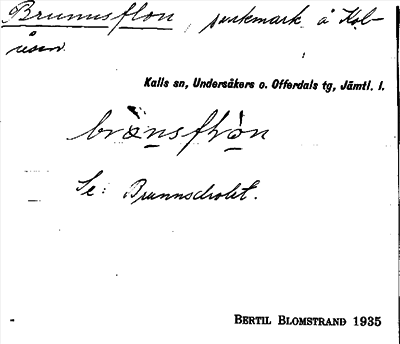 Brunnsflon, sankmark å Kol-
åsen.
Kalls sn, Undersåkers o. Offerdals tg, Jämtl. l.
Se: Brunnsholet.
BERTIL BLOMSTRAND 1935